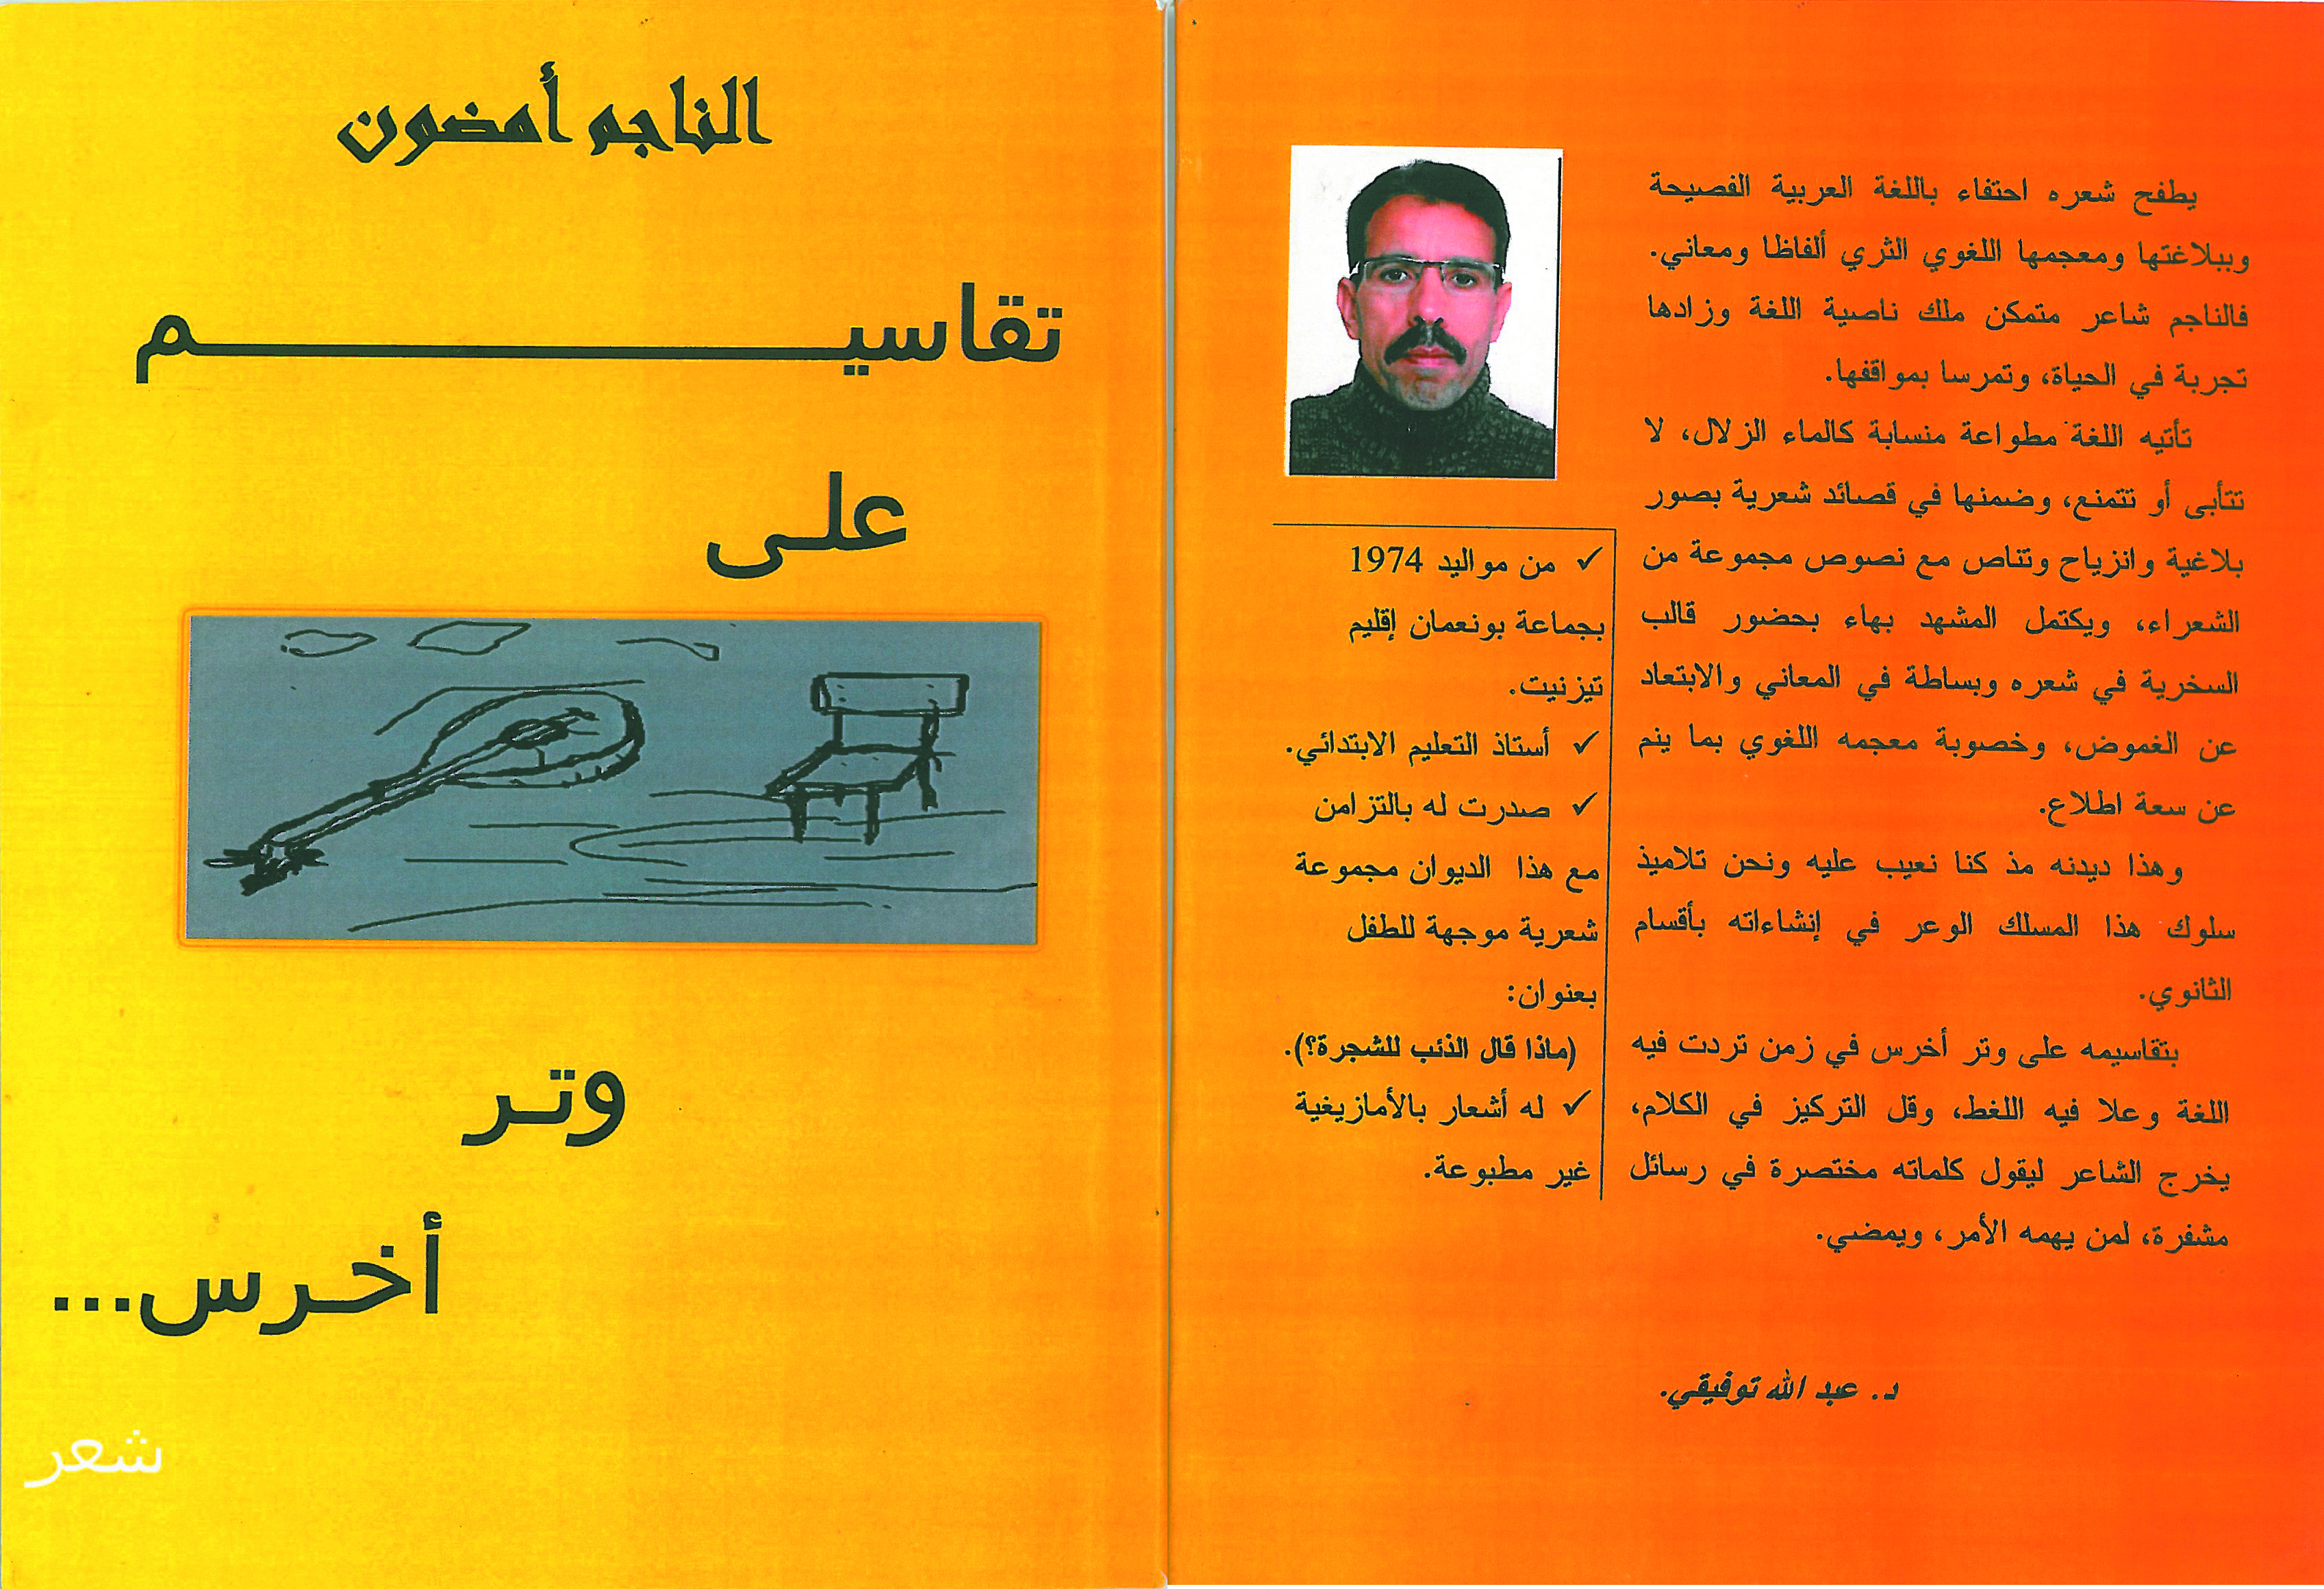 الناجم أمضون
تقاسيم
على
وتر
أخرس...
شعر
يطفح شعره احتفاء باللغة العربية الفصيحة
وببلاغتها ومعجمها اللغوي الثري ألفاظا ومعاني.
فالناجم شاعر متمكن ملك ناصية اللغة وزادها
تجربة في الحياة، وتمرسا بمواقفها.
تأتيه اللغة مطواعة منسابة كالماء الزلال، لا
تتأبى أو تتمنع، وضمنها في قصائد شعرية بصور
بلاغية وانزياح وتناص مع نصوص مجموعة من
الشعراء، ويكتمل المشهد بهاء بحضور قالب
السخرية في شعره وبساطة في المعاني والابتعاد
عن الغموض، وخصوبة معجمه اللغوي بما ينم
عن سعة اطلاع.
وهذا ديدنه مذ كنا نعيب عليه ونحن تلاميذ
سلوك هذا المسلك الوعر في إنشاءاته بأقسام
الثانوي.
بتقاسيمه على وتر أخرس في زمن تردت فيه
اللغة وعلا فيه اللغط، وقل التركيز في الكلام،
يخرج الشاعر ليقول كلماته مختصرة في رسائل
مشفرة، لمن يهمه الأمر، ويمضي.
د. عبد الله توفيقي.
✓ من مواليد 1974
بجماعة بونعمان إقليم
تيزنيت.
✓ أستاذ التعليم الابتدائي.
✓ صدرت له بالتزامن
مع هذا الديوان مجموعة
شعرية موجهة للطفل
بعنوان:
(ماذا قال الذئب للشجرة؟).
✓ له أشعار بالأمازيغية
غير مطبوعة.